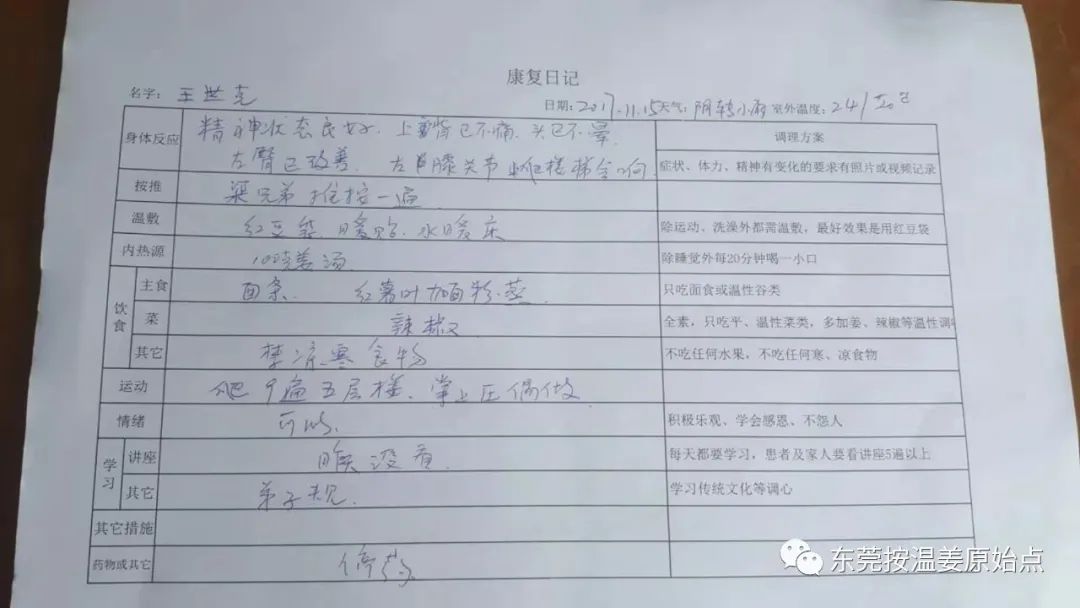 康复日记
名字: 王世克
日期:2017.11.15 天气:阴转小雨 室外温度:24/20℃
身体反应 精神状态良好、上背已不痛、头已不晕、 调理方案
左臂已改善、左膝关节 爬楼梯会响 症状、体力、精神有变化的要求有照片或视频记录
按推 梁兄弟推按一遍
温敷 红豆袋 暖贴、水暖床 除运动、洗澡外都需温敷，最好效果是用红豆袋
内热源 姜汤 除睡觉外每20分钟喝一小口
饮食 主食 面条、 红薯叶加面粉蒸 只吃面食或温性谷类
菜 辣椒 全素，只吃平、温性菜类，多加姜、辣椒等温性调
其它 禁凉寒食物 不吃任何水果，不吃任何寒、凉食物
运动 爬9遍五层楼、掌上压偶做
情绪 可以、 积极乐观、学会感恩、不怨人
学习 讲座 昨天没看 每天都要学习，患者及家人要看讲座5遍以上
其它 弟子规 学习传统文化等调心
其它措施
药物或其它 停药
东莞按温姜原始点